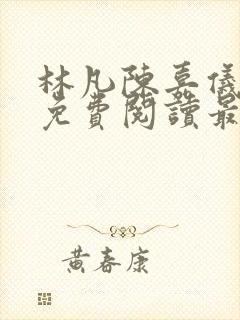 林凡陳嘉儀
免費閱讀最
黃春康